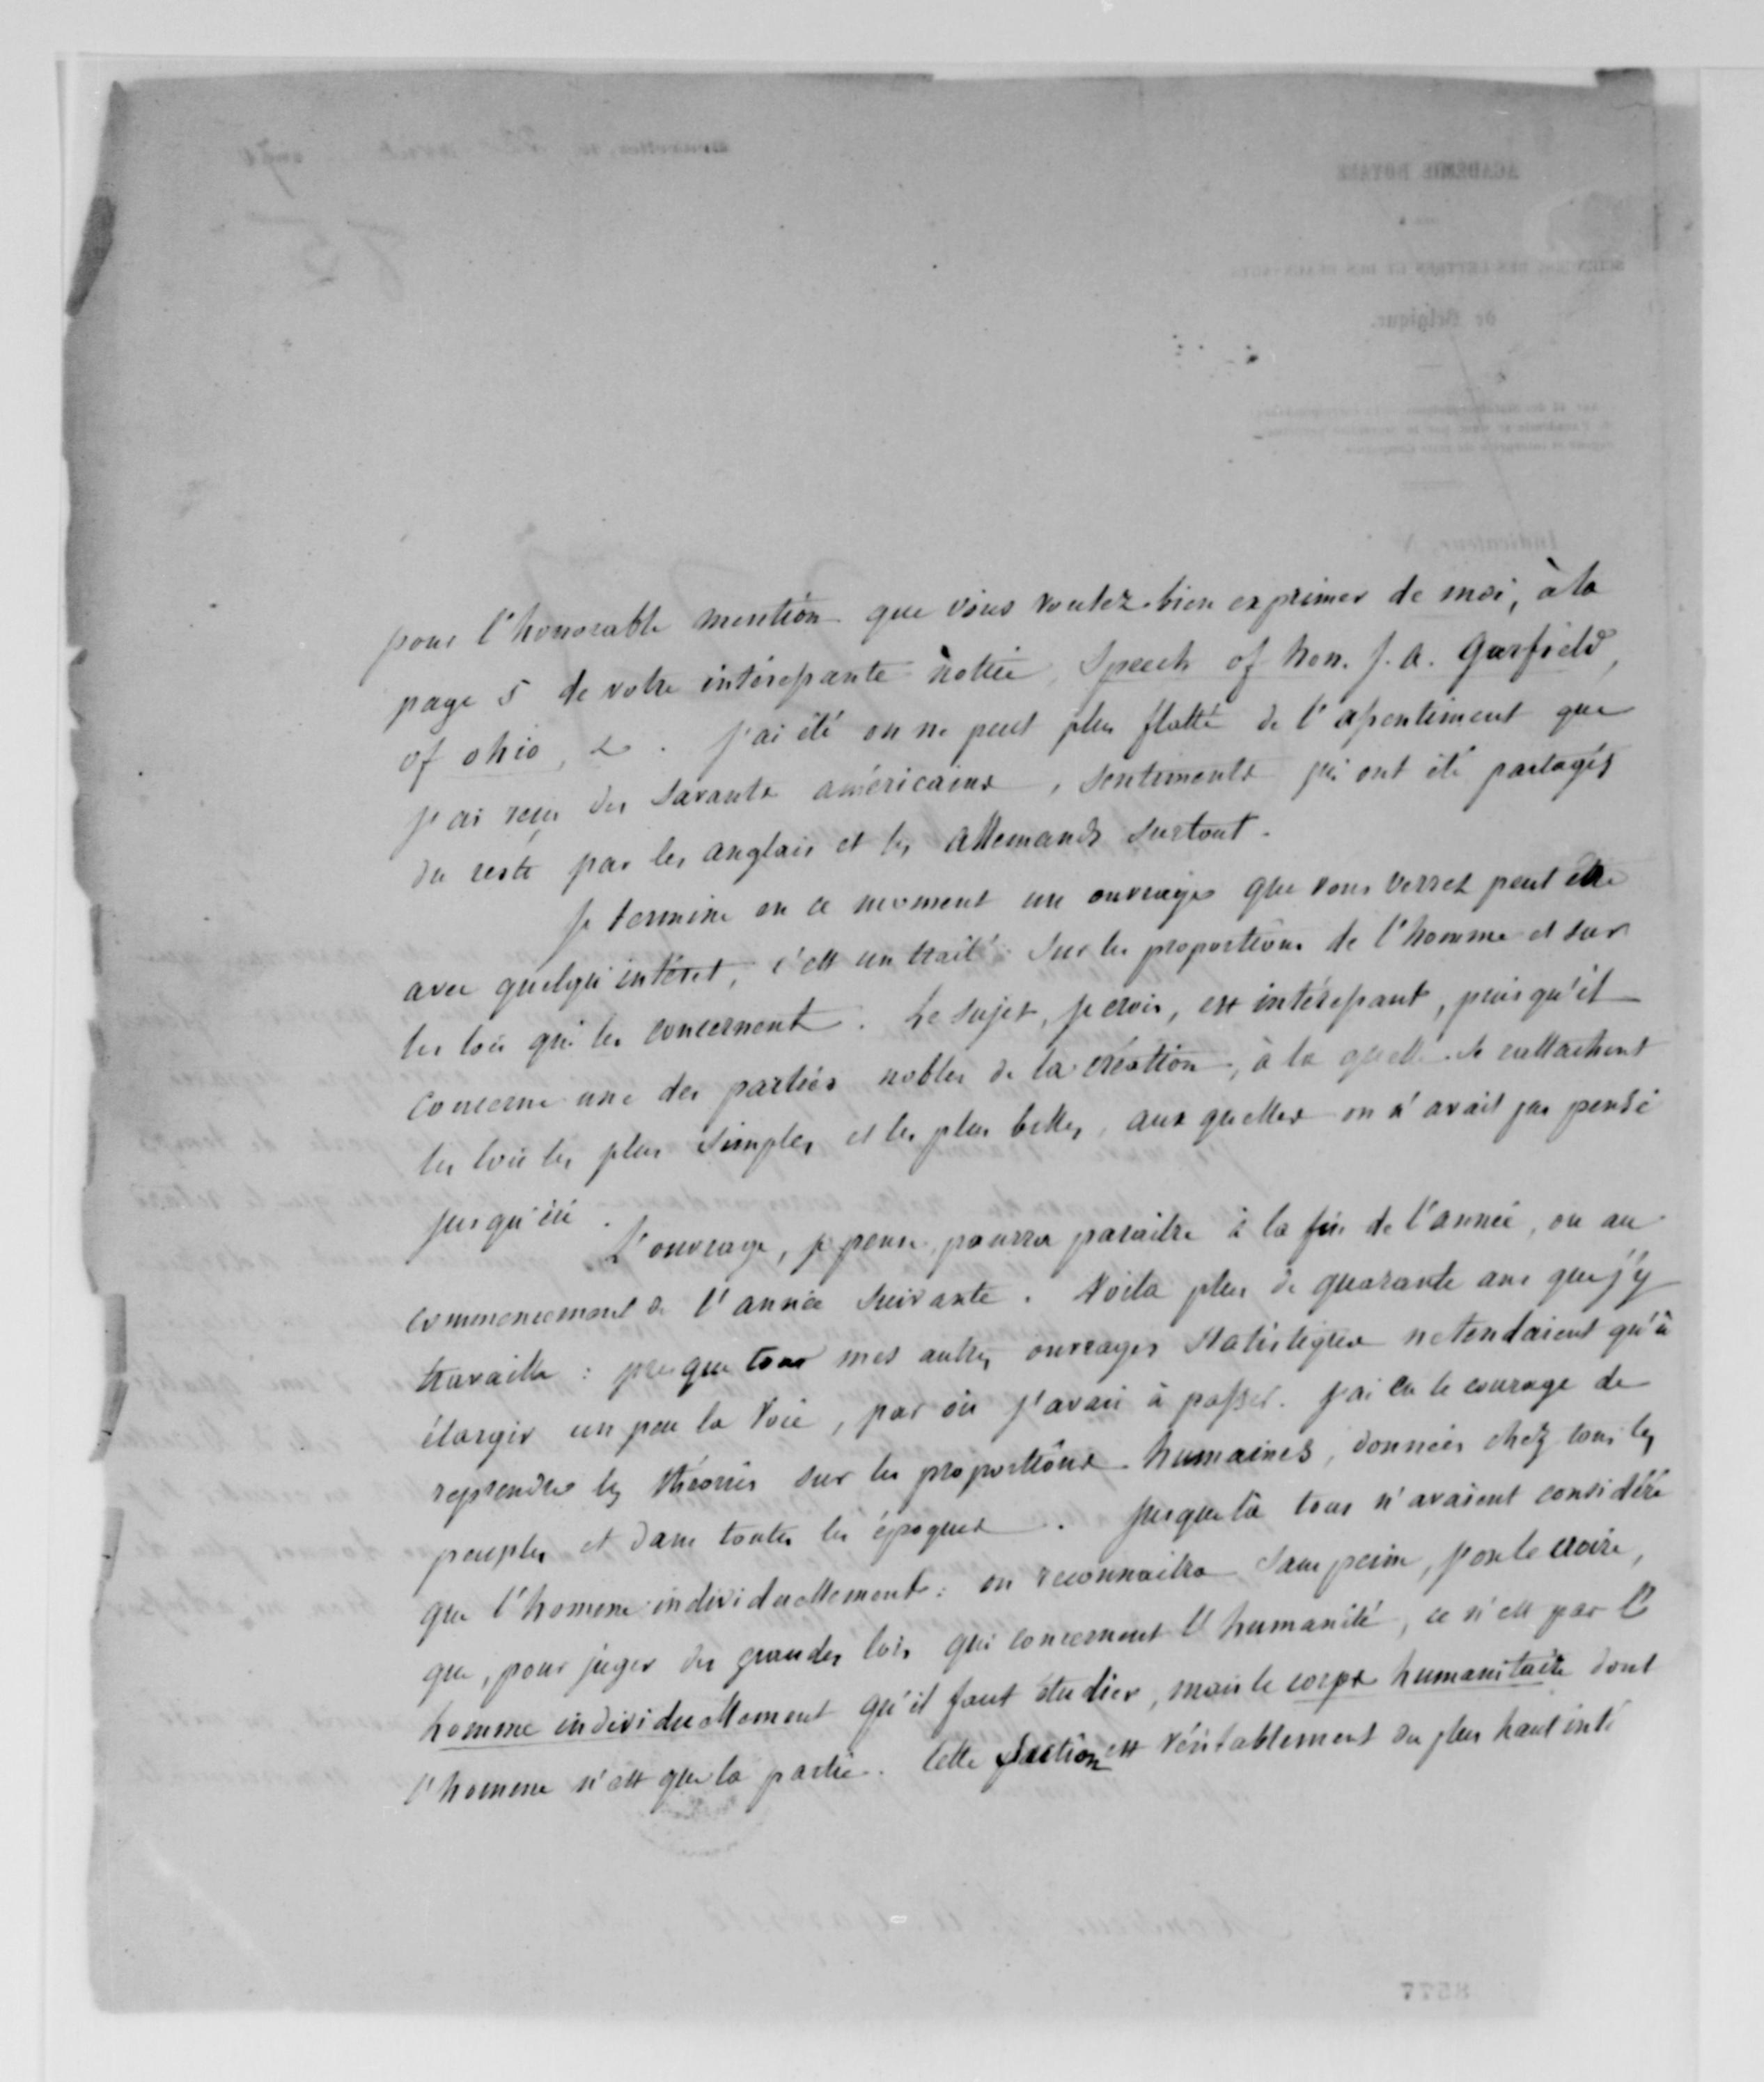 pour l'honorable mention que vous voulez bien exprimer de moi, à la
page 5 de votre intéressante notice, Speech of hon. J. A. Garfield,
of ohio, &. J'ai été on ne peut plus flatté de l'assentiment que
j'ai reçu des Savants américains, sentiments qui ont été partagés
du reste par les anglais et les allemands surtout.
Je termine en ce moment un ouvrage que vous verrez peut être
avec quelqu'intéret, c'est un traité sur les proportions de l'homme et sur
les lois qui les concernent. Le sujet, je crois, est intéressant, puisqu'il
concerne une des parties nobles de la création, à la quelle se rattachent
les lois les plus simples et les plus belles, aux quelles on n'avait pas pensé
jusqu'ici.
L'ouvrage, je pense, pourra paraitre à la fin de l'année, ou au
commencement de l'année suivante. Voila plus de quarante ans que j'y
travaille : presque tous mes autres ouvrages statistiques ne tendaient qu'à
élargir un peu la voie, par où j'avais à passer. J'ai eu le courage de
reprendre les théories sur les proportions humaines, données chez tous les
peuples et dans toutes les époques. Jusque là tous n'avaient considéré
que l'homme individuellement : on reconnaitra sans peine, j'ose le croire,
que, pour juger des grandes lois qui concernent l'humanité, ce n'est pas l'
homme individuellement qu'il faut étudier, mais le corps humanitaire dont
l'homme n'est que la partie. Cette section est véritablement du plus haut inté